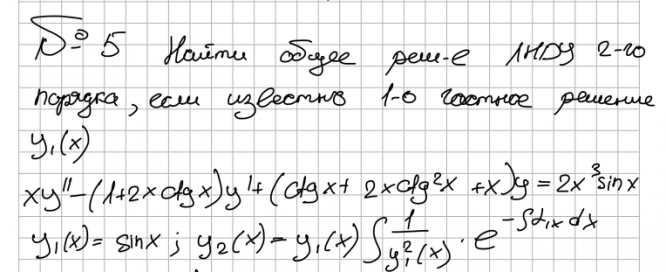 № 5 Найти общее реш-е ЛНДУ 2-го
порядка, если известно 1-о частное решение
y₁(x)
xy'' - (1+2x ctg x)y' + (ctg x + 2x ctg²x + x)y = 2x³sin x
y₁(x) = sin x ; y₂(x) = y₁(x) ∫ 1/y₁²(x) · e^(-∫α₁x dx)